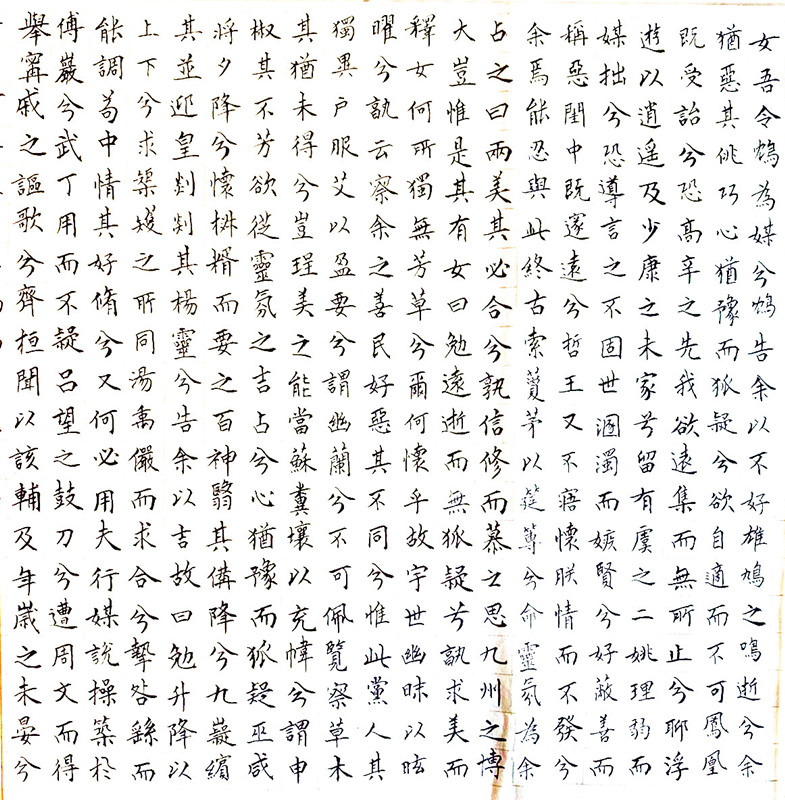 女吾令鴆為媒兮鴆告余以不好雄鳩之鳴逝兮余
猶惡其佻巧心猶豫而狐疑兮欲自適而不可鳳凰
既受詒兮恐高辛之先我欲遠集而無所止兮聊浮
遊以逍遙及少康之未家兮留有虞之二姚理弱而
媒拙兮恐導言之不固世溷濁而嫉賢兮好蔽善而
稱惡閨中既邃遠兮哲王又不寤懷朕情而不發兮
余焉能忍與此終古索藑茅以筳篿兮命靈氛為余
占之曰兩美其必合兮孰信修而慕之思九州之博
大豈惟是其有女曰勉遠逝而無狐疑兮孰求美而
釋女何所獨無芳草兮爾何懷乎故宇世幽昧以眩
曜兮孰云察余之善民好惡其不同兮惟此黨人其
獨異戶服艾以盈要兮謂幽蘭兮不可佩覽察草木
其猶未得兮豈珵美之能當蘇糞壤以充幃兮謂申
椒其不芳欲從靈氛之吉占兮心猶豫而狐疑巫咸
將夕降兮懷椒糈而要之百神翳其備降兮九嶷繽
其並迎皇剡剡其楊靈兮告余以吉故曰勉升降以
上下兮求榘矱之所同湯禹儼而求合兮摯咎繇而
能調苟中情其好脩兮又何必用夫行媒說操築於
傅巖兮武丁用而不疑呂望之鼓刀兮遭周文而得
舉甯戚之謳歌兮齊桓聞以該輔及年歲之未晏兮